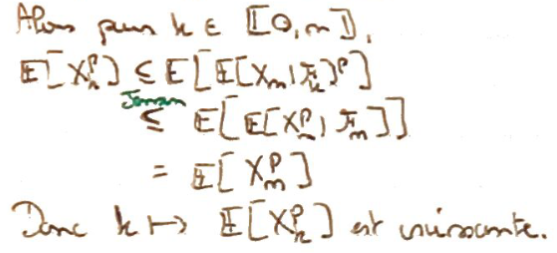 Alors pour k ∈ ⟦0,n⟧,
E[X_k^p] ≤ E[E[X_n | F_k]^p]
Jensen
≤ E[E[X_n^p | F_n]]
= E[X_n^p]
Donc k ↦ E[X_k^p] est croissante.